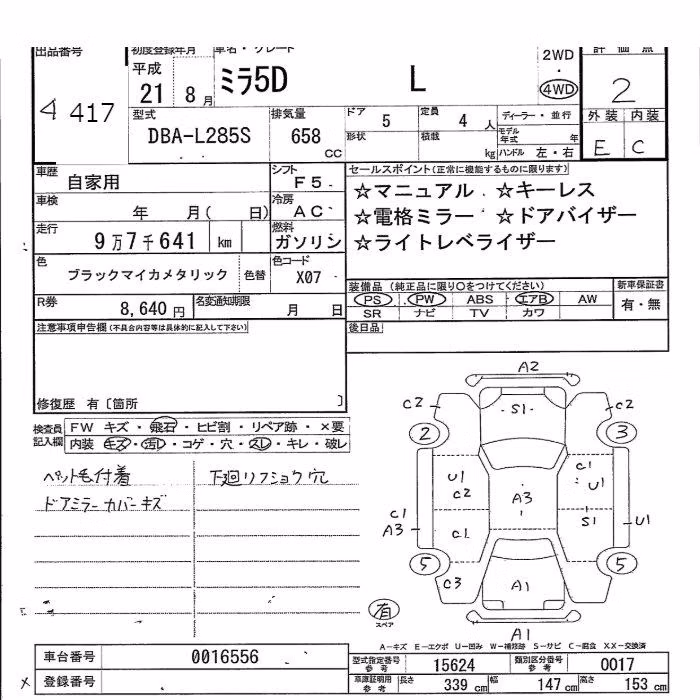 出品番号
4 417
初度登録年月
平成
21 8 月
車名・グレード
ミラ5D L
2WD
・
4WD
評価点
2
外装 内装
E C
型式
DBA-L285S
排気量
658
CC
ドア
5
定員
4 人
形状
積載
kg
ディーラー・並行
モデル年式 年
ハンドル 左・右
車歴
自家用
シフト
F5
車検
年 月( 日)
冷房
AC
走行
9万7千641 km
燃料
ガソリン
色
ブラックマイカメタリック
色替
色コード
X07
R券
8,640 円
名変通知期限
月 日
セールスポイント(正常に機能するものに限ります)
☆マニュアル ☆キーレス
☆電格ミラー ☆ドアバイザー
☆ライトレベライザー
装備品 (純正品に限り○をつけてください)
PS PW ABS エアB AW
SR ナビ TV カワ
新車保証書
有・無
後日品
注意事項申告欄(不具合内容等は具体的に記入して下さい)
修復歴 有〔箇所 〕
検査員記入欄
FW キズ・飛石・ヒビ割・リペア跡・×要
内装 キズ・汚レ・コゲ・穴・スレ・キレ・破レ
ペット毛付着
ドアミラーカバーキズ
下廻リフショウ穴
A2
C2 S1 C2
2 3
U1
C2
C1
U1
A3
C1
A3
C1
S1
U1
5 5
C3
A1
A1
有
スペア
A-キズ E-エクボ U-凹み W-補修跡 S-サビ C-腐食 XX-交換済
車台番号 0016556
登録番号
×
型式指定番号参考 15624
類別区分番号参考 0017
車庫証明用参考
長さ 339 cm
幅 147 cm
高さ 153 cm